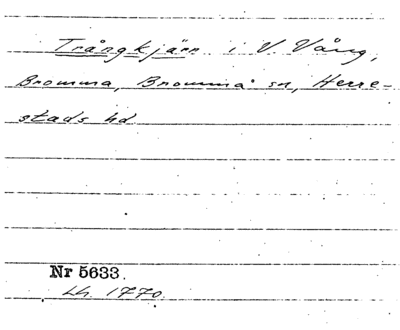 Trångkjärr i V. Vång,
Bromma, Bromma sn, Herre-
stads hd
Nr 5633.
Lh. 1770.